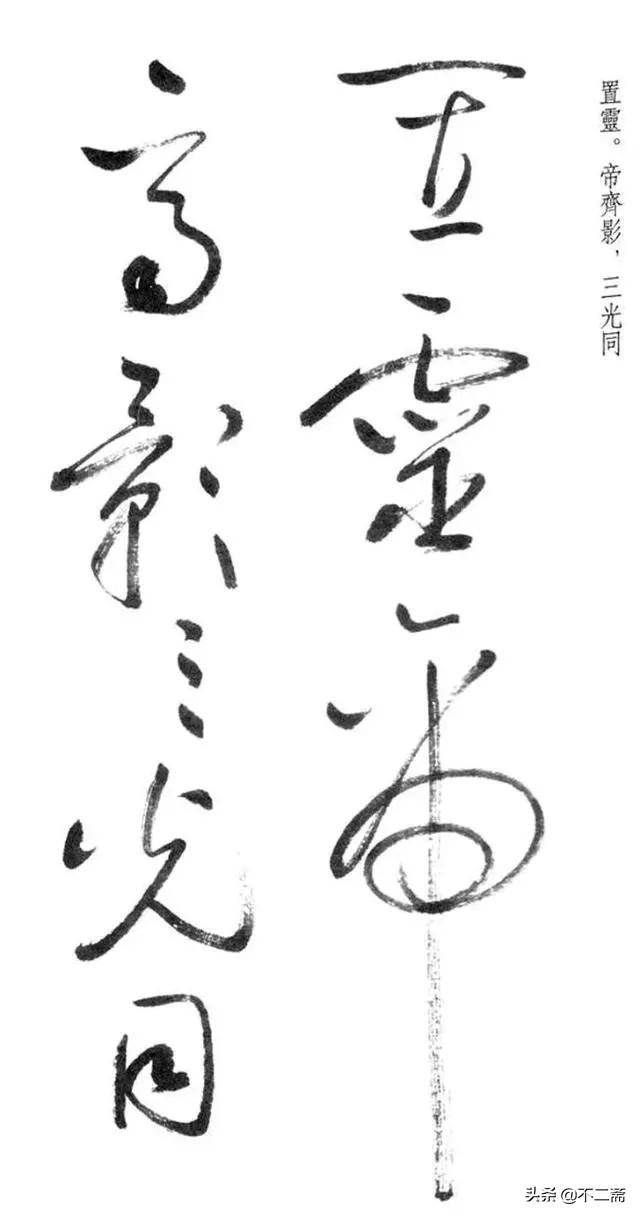 置靈。帝齊影，三光同
置靈帝
齊影三光同
头条 @不二斋